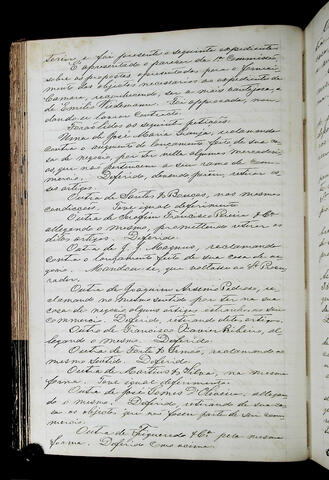 teren, e foi presente o seguinte expediente:
É apresentado o parecer da 1ª Commissão,
sobre as propostas apresentadas para o forneci-
mento dos objectos necessarios ao expediente da
Camara, reconhecendo, ser a mais vantajosa, a
de Emilio Wiedmann. Foi approvado, man-
dando-se lavrar contracto.
Forão lidas as seguintes petições:
Uma de José Maria reclamando
contra o augmento do lançamento feito de sua ca-
sa de negocio, por ter nella algumas mercadori-
as, que não pertencem a seu ramo de com-
mercio. Deferido, devendo porem retirar es-
ses artigos.
Outra de Santos & nas mesmas
condicções. Teve igual deferimento
Outra de Serafim Francisco Pereira & Cª
allegando o mesmo, promettendo retirar os
ditos artigos. Deferido.
Outra de J. J. Magnus, reclamando
contra o lançamento feito de sua casa de ne-
gocio. Mandou-se que voltasse ao Sr Procu-
rador.
Outra de Joaquim Arsenio Pedroso, re-
clamando no mesmo sentido por ter na sua
casa de negocio alguns artigos extranhos ao seu
commercio. Deferido, retirando estes artigos.
Outra de Francisco Xavier Ribeiro, al-
legando o mesmo. Deferido.
Outra de & Irmão, reclamando no
mesmo sentido. Deferido.
Outra de Martins & Silva, na mesma
forma. Teve igual deferimento.
Outra de José Gomes d'Oliveira, allegan-
do o mesmo. Deferido, retirando de sua ca-
sa os objectos que não fazem parte de seu com-
mercio.
Outra de Figueredo & Cª pela mesma
forma. Deferido como acima.